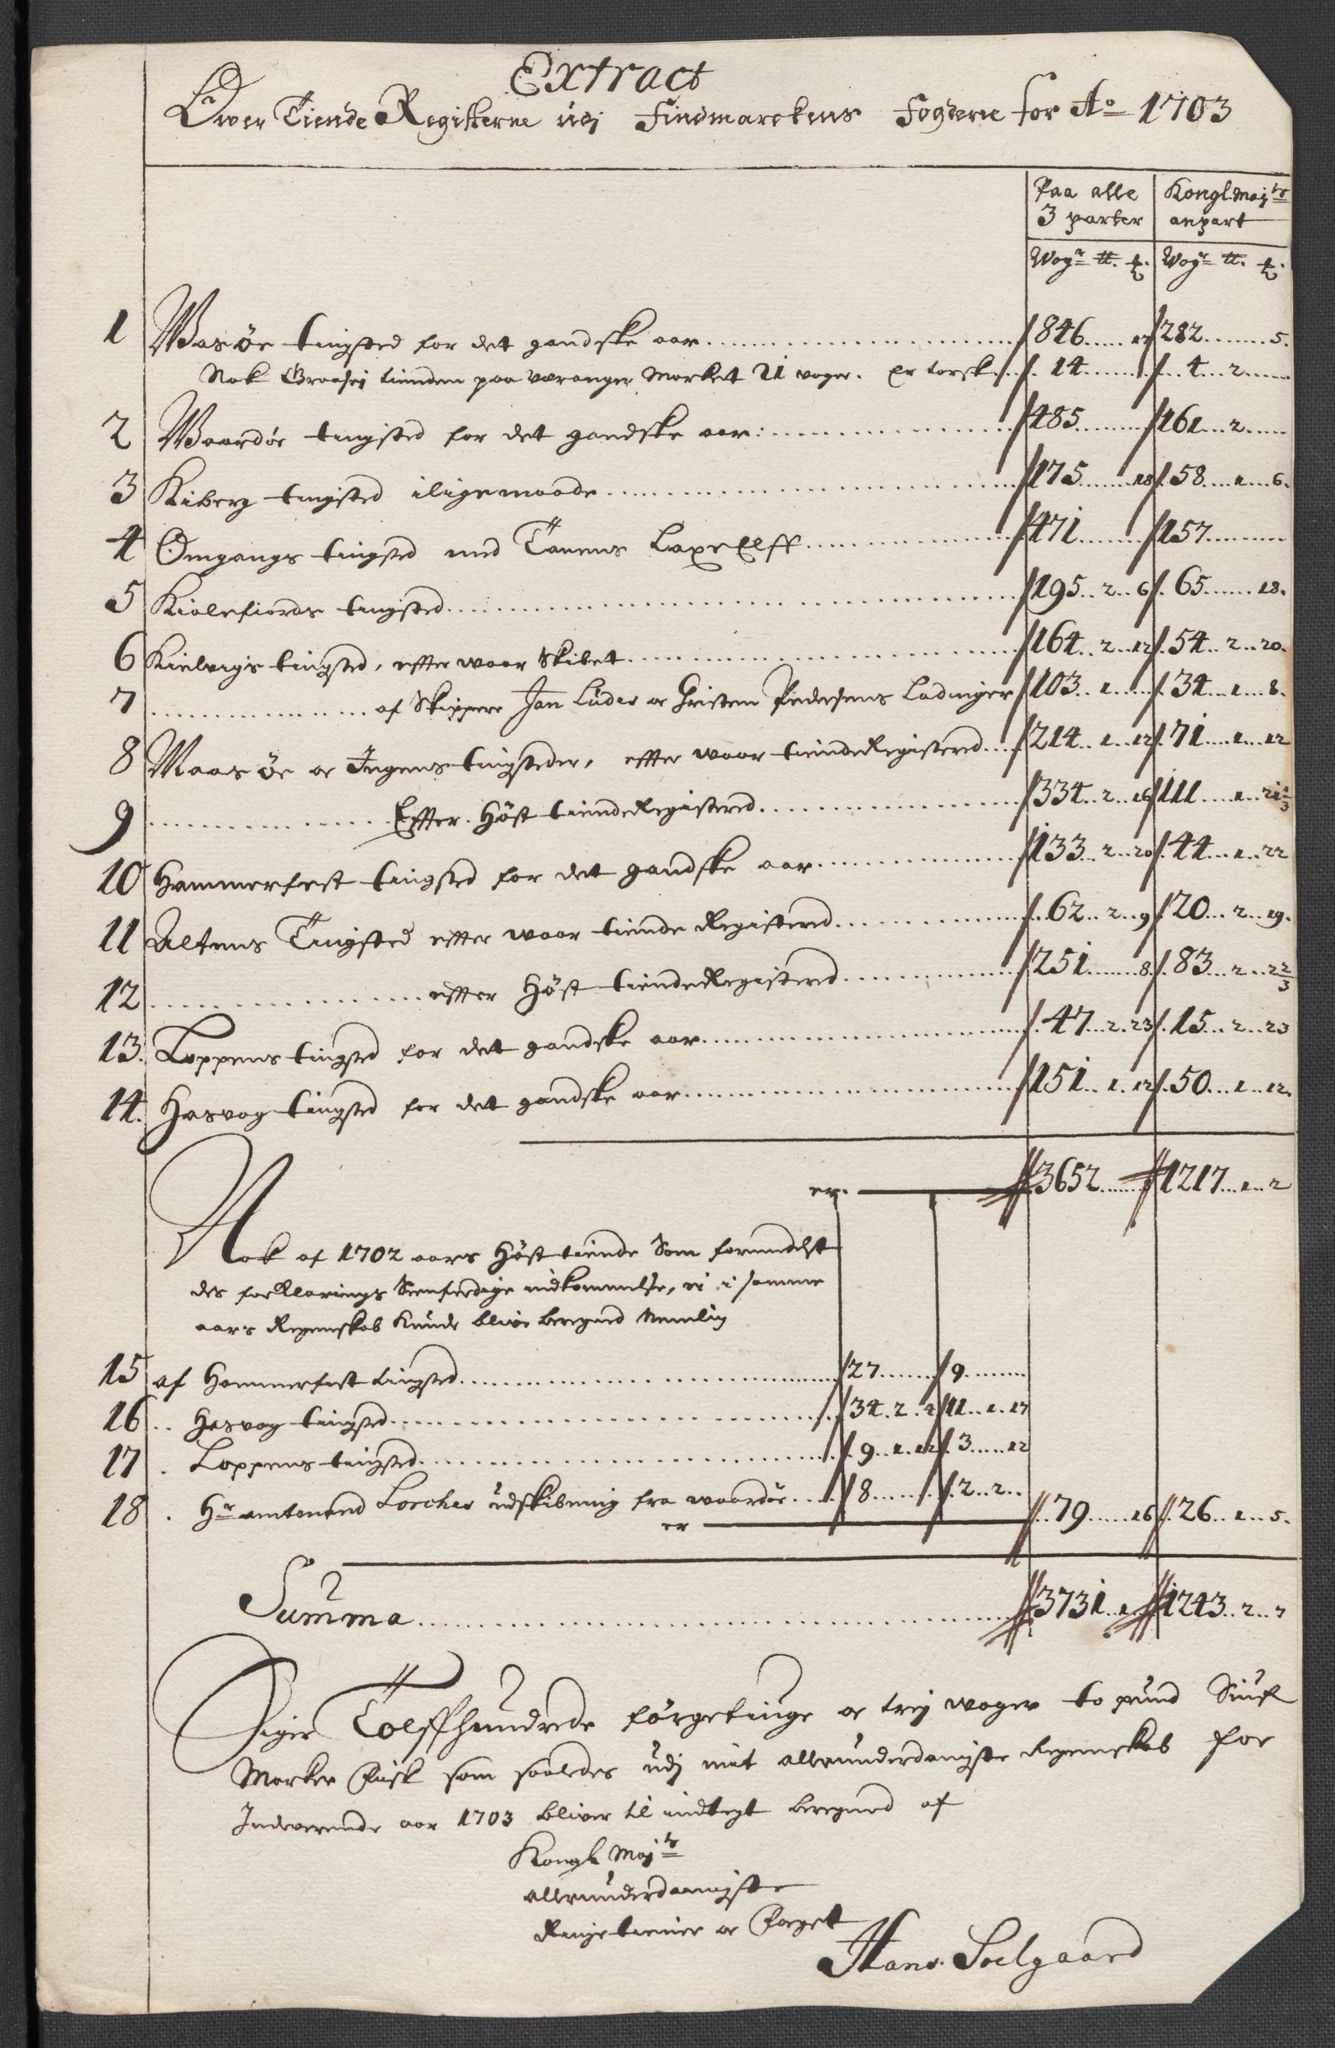 Extract
Over Tiende Registerne udj Findmarckens Fogderie for Ao 1703
Paa alle Kongl Mayts
3 parter anpart
Wogr tt. Wogr tt.
1 Wasøe tingsted for det gandske aar 846 17 282 5
Nok Graasej tienden paa Varanger Market 21 voger. er torsk 14 4 2
2 Waardøe tingsted for det gandske aar: 485 161 2
3 Kiberg tingsted iligemaade 175 18 58 1 6
4 Omgangs tingsted med Tanens LaxeElff 471 157
5 Kiølefiords tingsted 195 2 6 65 18
6 Kielvigs tingsted, efter waar Skibet 164 2 12 54 2 20
7 af Skippere Jan Lüder oc Christen Pedersens Ladinger 103 1 34 1 8
8 Maasøe oc Ingens tingsteder, efter waar tiendeRegistered 214 1 12 71 1 12
9 Efter Høst tiendeRegistered 334 2 16 111 1 21 1/3
10 Hammerfest tingsted for det gandske aar 133 2 20 44 1 22
11 Altens Tingsted efter waar tiende Registered 62 2 9 20 2 19
12 efter Høst tiendeRegistered 251 8 83 2 2 2/3
13 Loppens tingsted for det gandske aar 47 2 23 15 2 23
14 Hasvog tingsted for det gandske aar 151 1 12 50 1 12
er 3652 1217 1 2
Nok af 1702 aars Høst tiende Som formedelst
des forklarings Seenferdige indkommelse, ej i samme
aars Regenskab Kunde blive beregned Nemlig
15 af Hammerfest tingsted 27 9
16 Hasvog tingsted 34 2 4 11 1 17
17 Loppens tingsted 9 1 12 3 12
18 Hr amtmand Lorches udskibning fra waardøe 8 2 2
er 79 16 26 1 5
Summa 3731 1 1243 2 7
Siger Tolffhundrede førgetiuge oc trej woger to pund Siuf
Marker Fisk som saaledes udj mit allerunderdanigste Regenskab for
Indeværende aar 1703 bliver til indtegt beregned af
Kongl Mayts
allerunderdanigste
Ringe tiener oc Foget
Hans Soelgaard